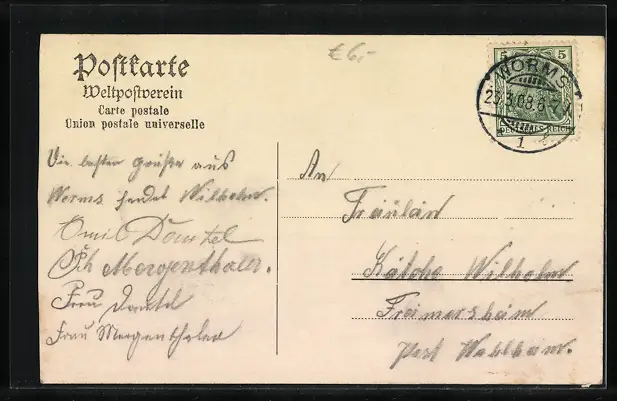 Postkarte
Weltpostverein
Carte postale
Union postale universelle
€6,-
5 5
WORMS
23.3.08.6-7N
DEUTSCHES REICH
1
Die besten Grüße aus
Worms sendet Wilhelm.
Emil Domtel
Morgenthaler.
Frau Domtel
Frau Morgenthaler
An
Fräulein
Käthe Wilhelm
Freimersheim
Post Wahlheim.